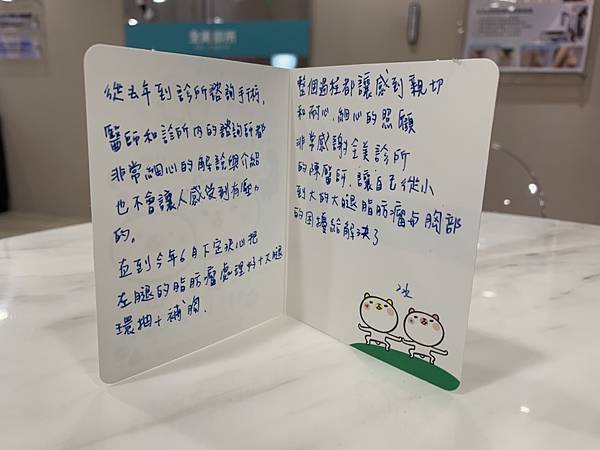 從去年到診所諮詢手術,
醫師和診所內的諮詢所都
非常細心的解說與介紹
也不會讓人感受到有壓力
的。
直到今年6月下定決心把
左腿的脂肪瘤處理好+大腿
環抽+補胸.
整個過程都讓感到親切
和耐心、細心的照顧
非常感謝全美診所
的陳醫師、讓自己從小
到大的大腿脂肪瘤与胸部
的困擾給解決了